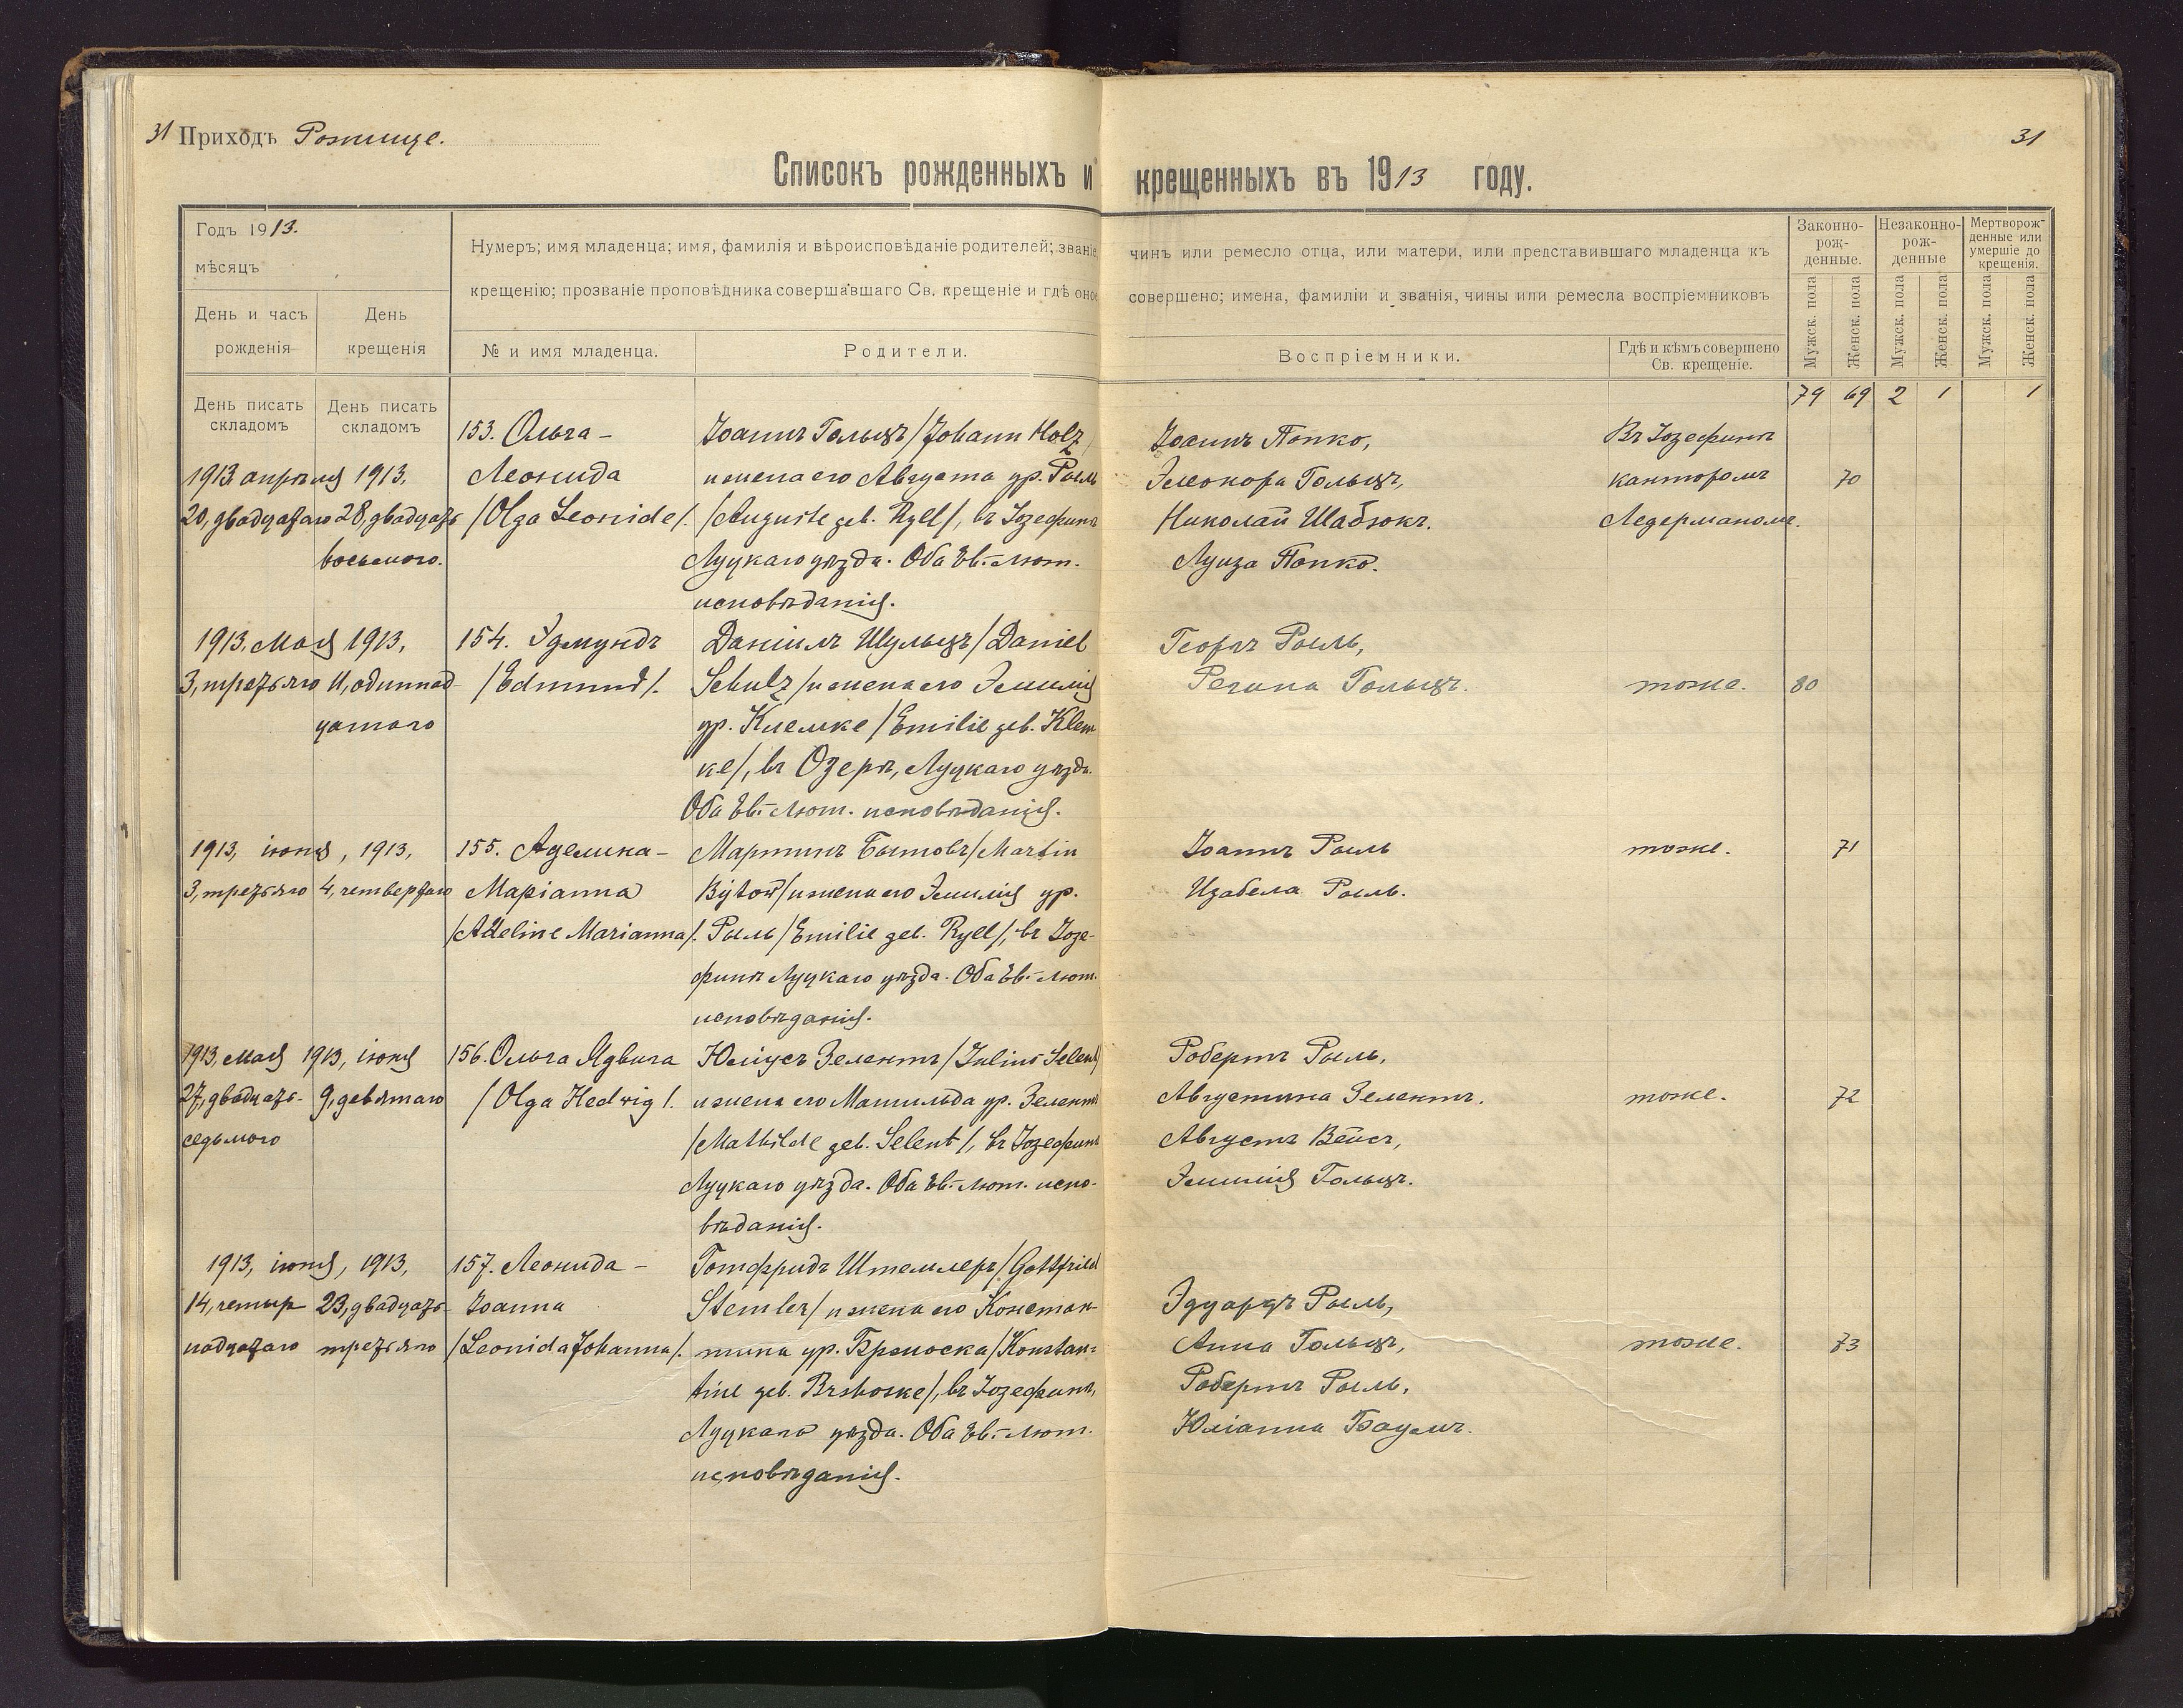 31 Приходъ Рожище.
31
Списокъ рожденныхъ и крещенныхъ въ 1913 году.
Годъ 1913.
мѣсяцъ
День и часъ рожденія
День крещенія
Нумеръ; имя младенца; имя, фамилія и вѣроисповѣданіе родителей; званіе,
крещенію; прозваніе проповѣдника совершавшаго Св. крещеніе и гдѣ оно
№ и имя младенца.
Родители.
чинъ или ремесло отца, или матери, или представившаго младенца къ
совершено; имена, фамиліи и званія, чины или ремесла воспріемниковъ
Воспріемники.
Гдѣ и кѣмъ совершено
Св. крещеніе.
Законно-
рож-
денные.
Незаконно-
рож-
денные
Мертворож-
денные или
умершіе до
крещенія.
Мужск. пола
Женск. пола
Мужск. пола
Женск. пола
Мужск. пола
Женск. пола
79 69 2 1 1
День писать
складомъ
День писать
складомъ
1913 апрѣля 1913,
20, двадцатаго 28, двадцать
восьмого.
153. Ольга-
Леонида
/Olga Leonide/.
Іоаннъ Гольцъ /Johann Holz/
и жена его Августа ур. Рыль
/Auguste geb. Ryll/, въ Іозефинѣ
Луцкаго уѣзда. Оба Ев.-лют.
исповѣданія.
Іоаннъ Попко,
Элеонора Гольцъ,
Николай Шабзокъ.
Луиза Попко.
Въ Іозефинѣ
канторомъ
Ледерманомъ.
70
1913, мая 1913,
3, третьяго 11, одиннад-
цатаго
154. Эдмундъ
/Edmund/.
Даніилъ Шульцъ /Daniel
Schulz/ и жена его Эмилія
ур. Клемке /Emilie geb. Klem
ке/, въ Озерѣ, Луцкаго уѣзда.
Оба Ев.-лют. исповѣданія.
Георгъ Рыль,
Регина Гольцъ.
тоже.
80
1913, іюня, 1913,
3, третьяго 4, четвертаго
155. Аделина-
Маріанна
/Adeline Marianna/.
Мартинъ Бытовъ /Martin
Bytow/ и жена его Эмилія ур.
Рыль /Emilie geb. Ryll/, въ Іозе-
финѣ Луцкаго уѣзда. Оба Ев.-лют.
исповѣданія.
Іоаннъ Рыль
Изабела Рыль.
тоже.
71
1913, мая 1913, іюня
27, двадцать- 9, девятаго
седьмого
156. Ольга Ядвига
/Olga Hedwig/.
Юліусъ Зелентъ /Julius Selent/
и жена его Матильда ур. Зелентъ
/Mathilde geb. Selent/, въ Іозефинѣ
Луцкаго уѣзда. Оба Ев.-лют. испо-
вѣданія.
Робертъ Рыль,
Августина Зелентъ.
Августъ Вейсъ,
Эмилія Гольцъ.
тоже.
72
1913, іюня, 1913,
14, четыр 23, двадцать-
надцатаго третьяго
157. Леонида-
Іоанна
/Leonida Johanna/.
Готфридъ Штемлеръ /Gottfried
Stemler/ и жена его Констан-
тина ур. Бржоска /Konstan-
tine geb. Brshoske/, въ Іозефинѣ,
Луцкаго уѣзда. Оба Ев.-лют.
исповѣданія.
Эдуардъ Рыль,
Анна Гольцъ,
Робертъ Рыль,
Юліанна Баумъ.
тоже.
73